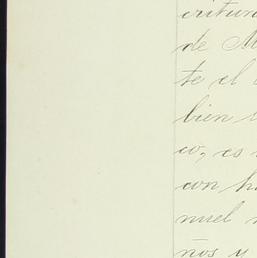 critura
de M
te el
bien
co, es
con h
nuel
ños y